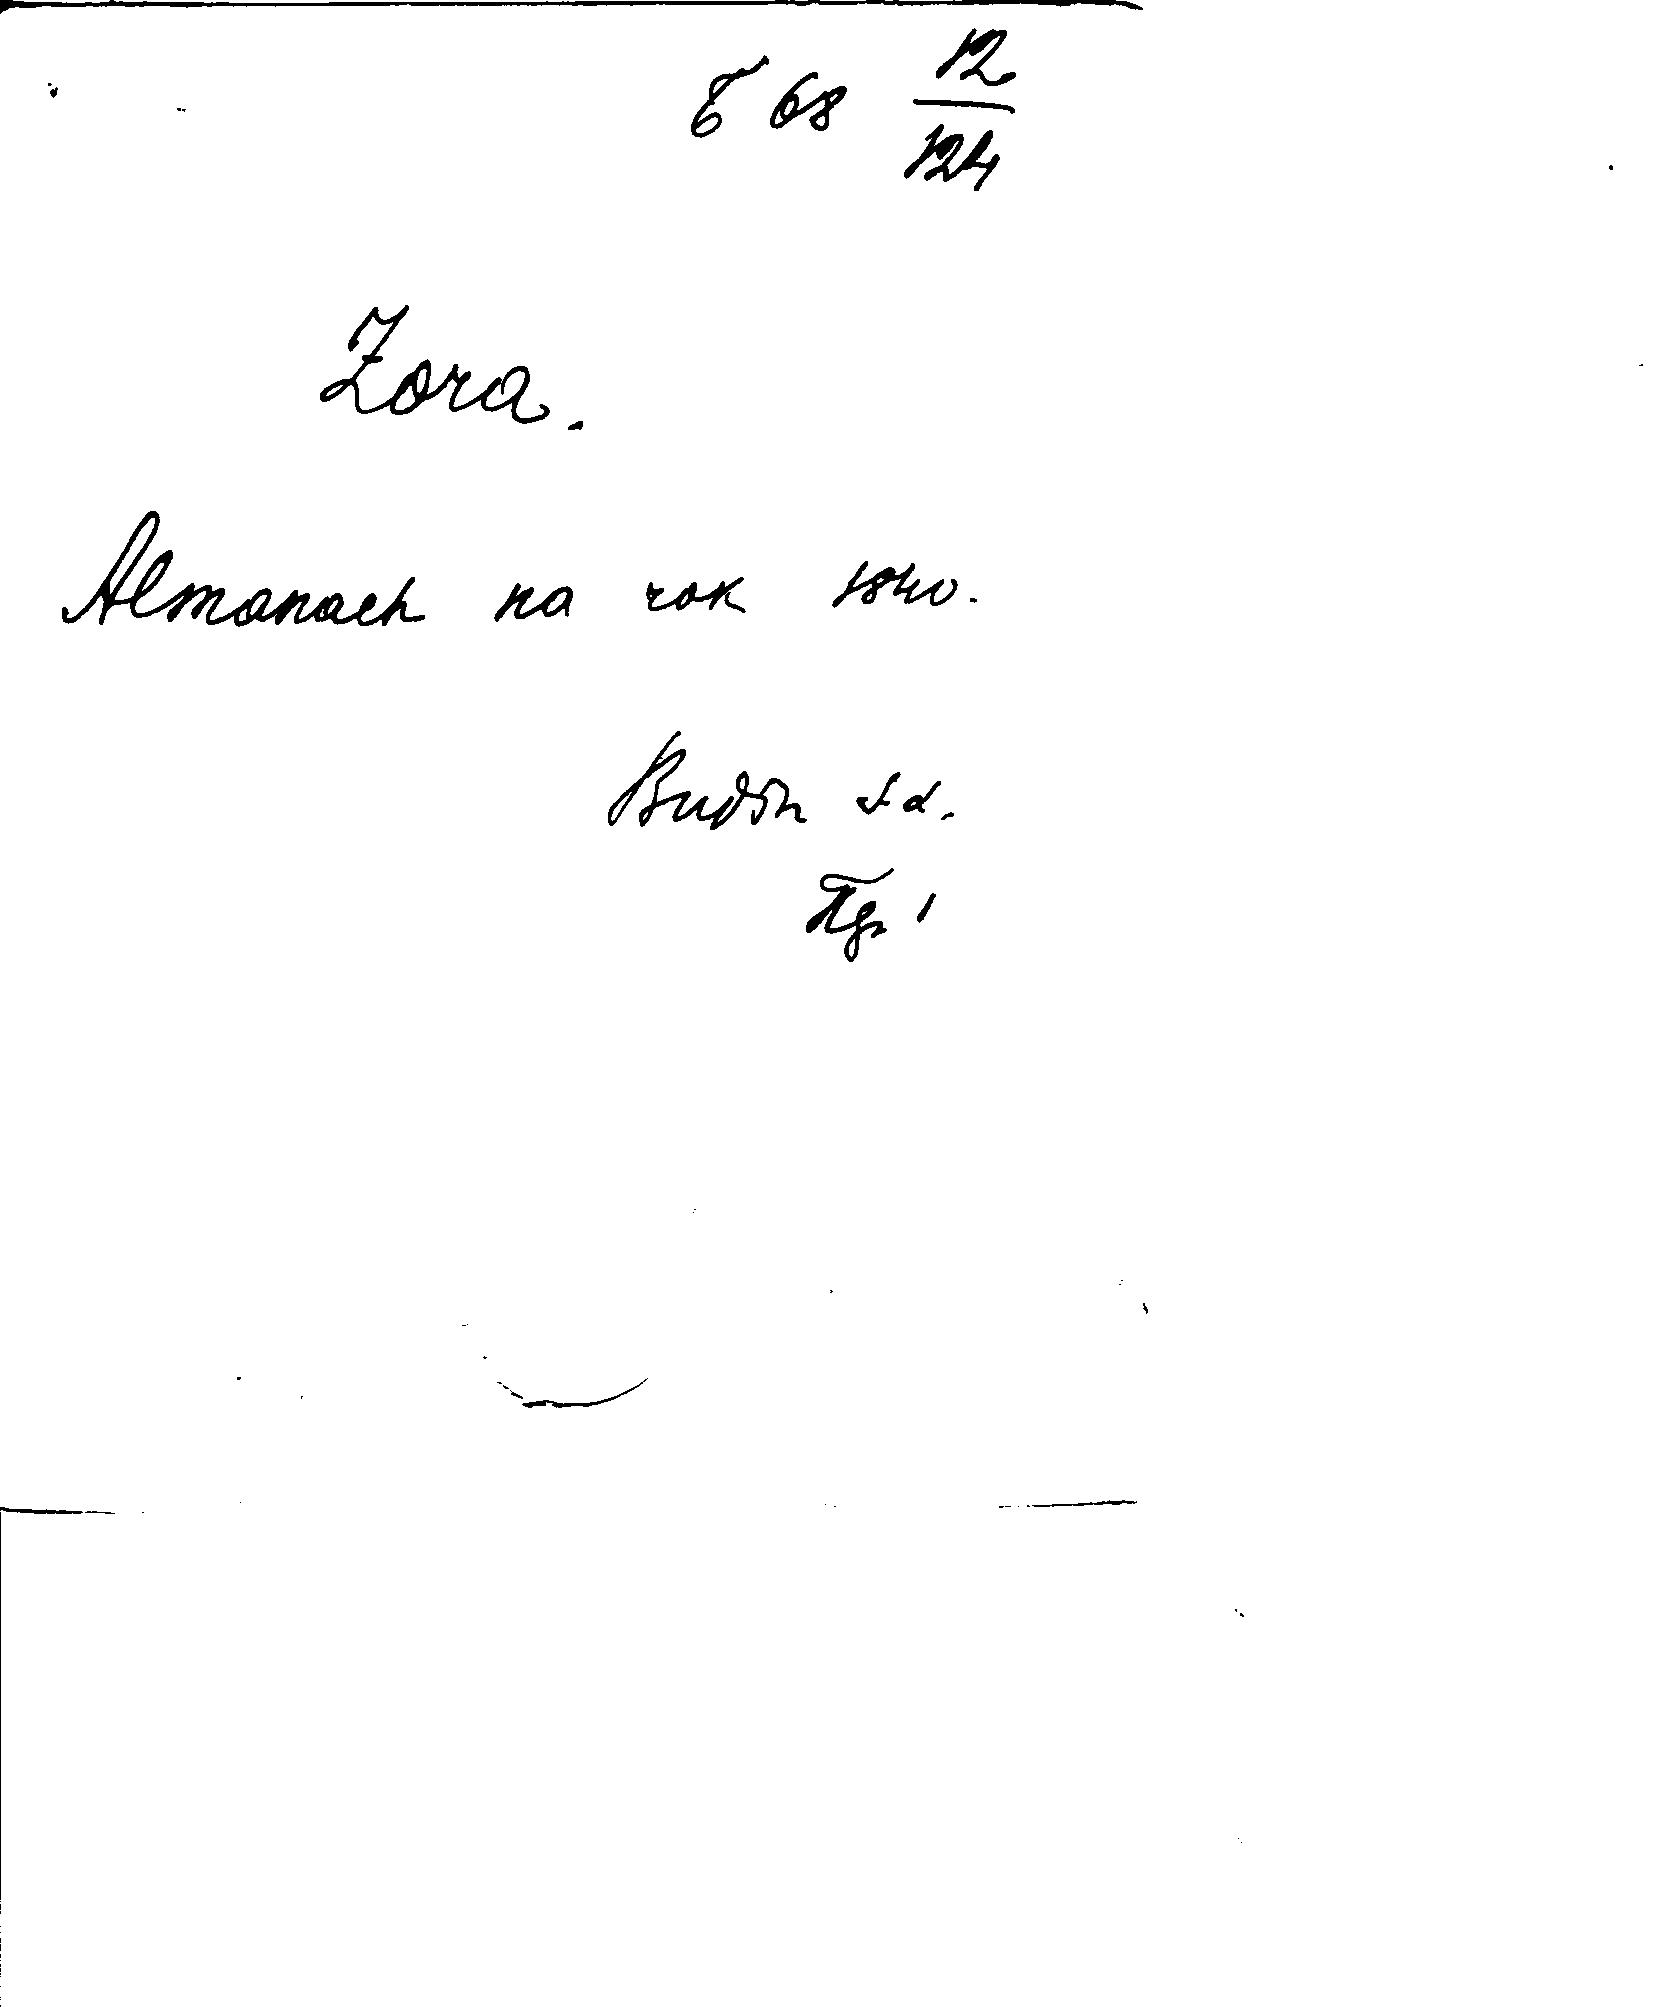 Б 68 12/124
Zora.
Almanach na rok 1840.
Budin s.a.